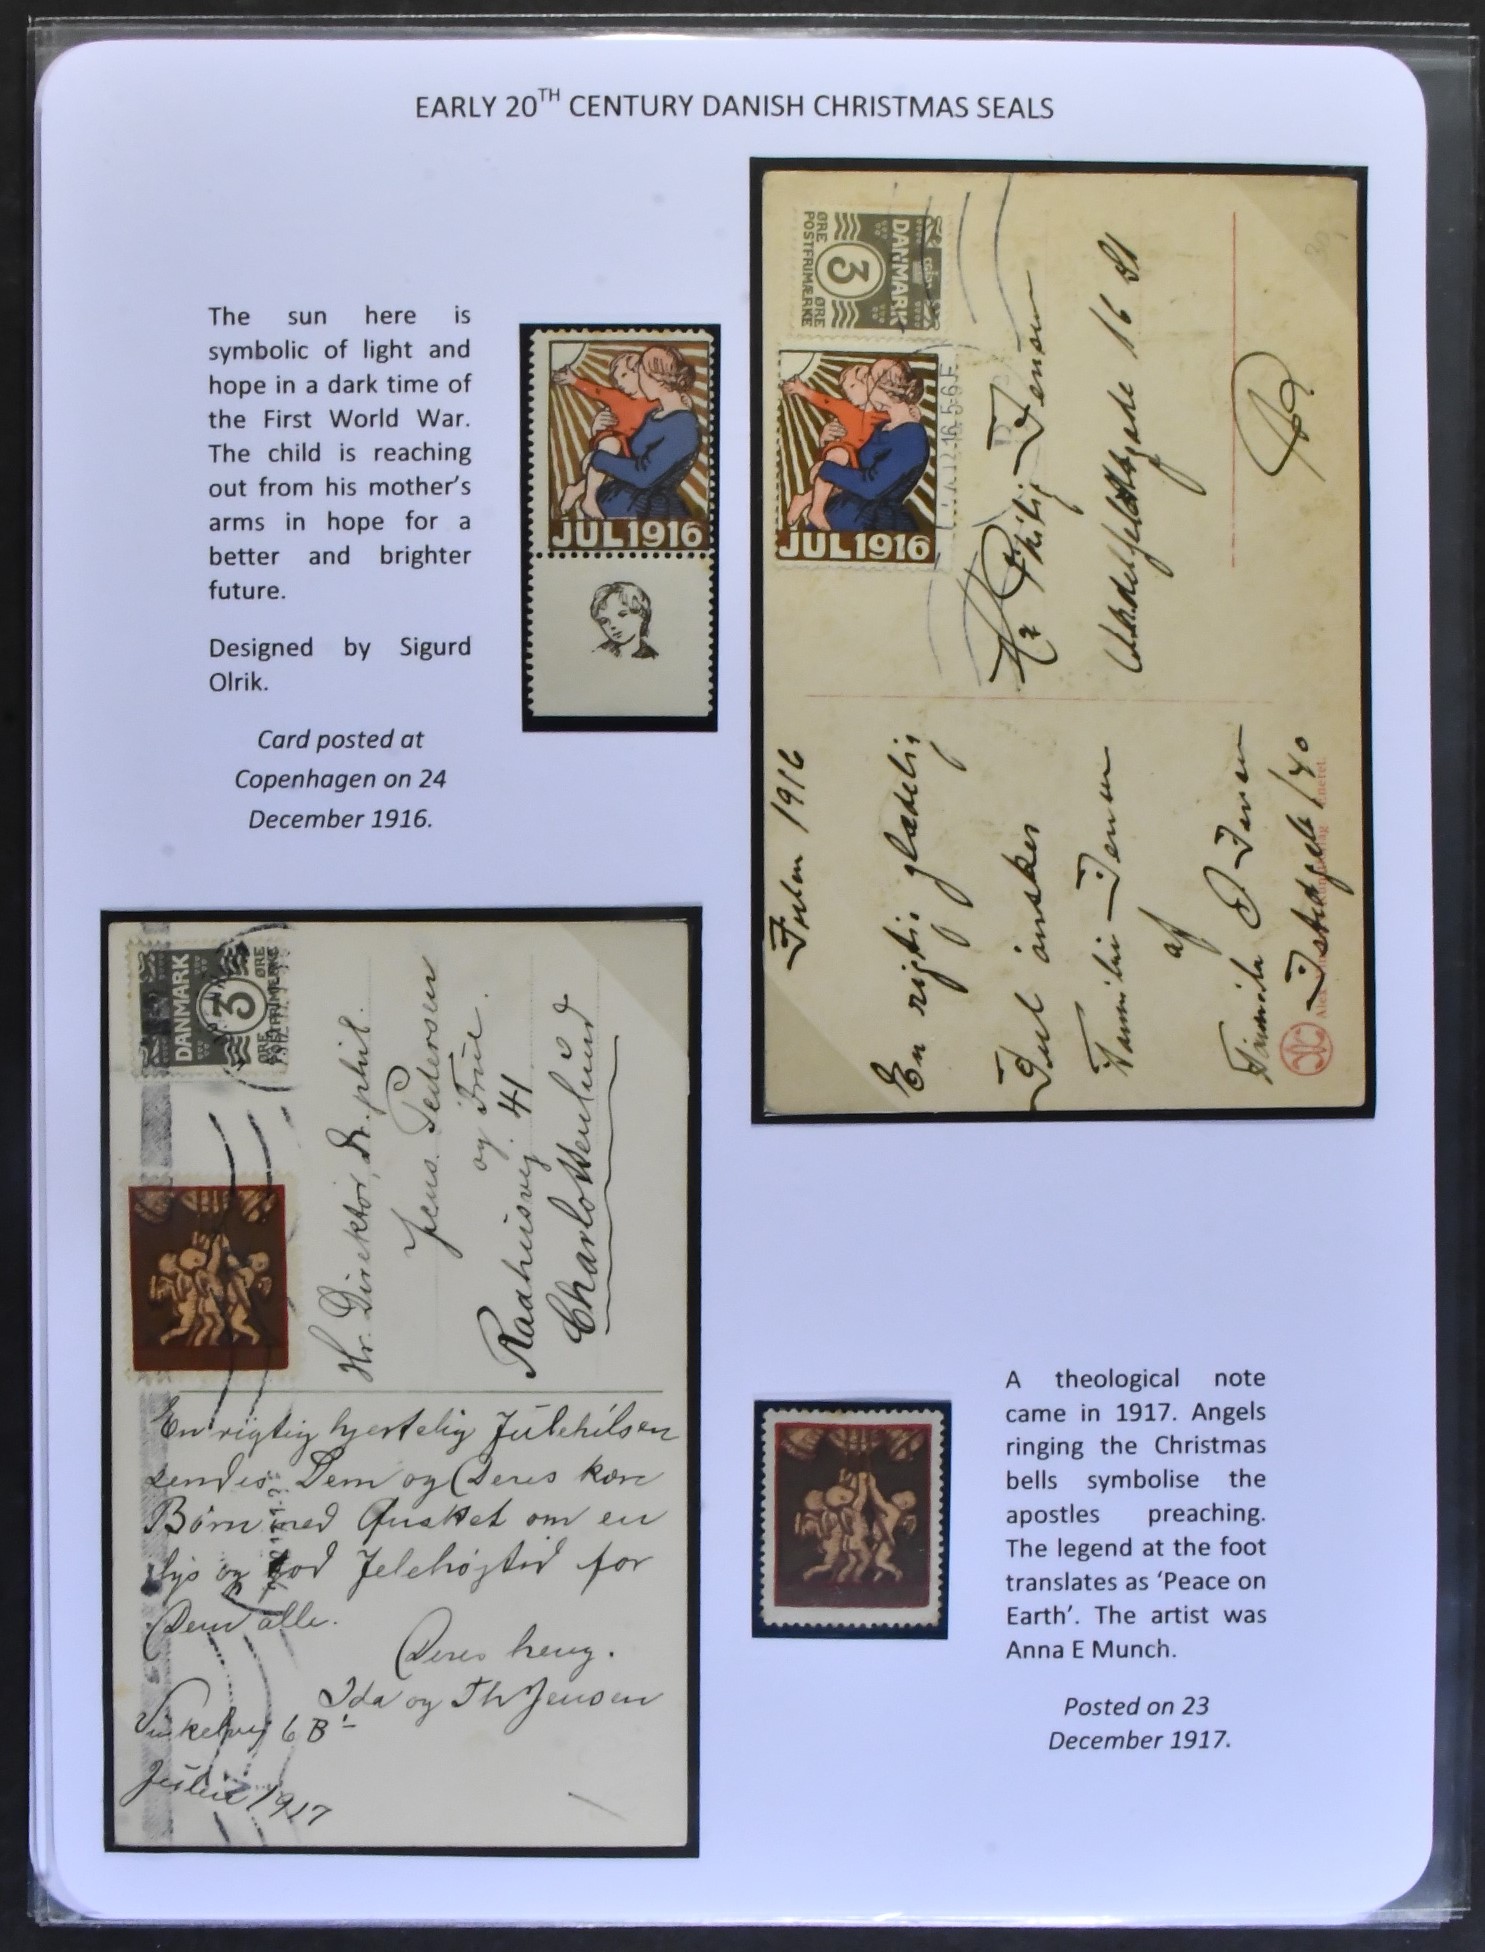 EARLY 20TH CENTURY DANISH CHRISTMAS SEALS
The sun here is
symbolic of light and
hope in a dark time of
the First World War.
The child is reaching
out from his mother's
arms in hope for a
better and brighter
future.
Designed by Sigurd
Olrik.
Card posted at
Copenhagen on 24
December 1916.
JUL 1916
DANMARK
3
ØRE ØRE
POSTFRIMÆRKE
JUL 1916
12.16.5-6 F
Hr Philip Jensen
16 St
Julen 1916
En rigtig glædelig
Jul ønskes
Familien Jensen
af
Jensen
Istedgade 140
Eneret.
DANMARK
3
ØRE ØRE
POSTFRIMÆRKE
Hr. Direktør, Dr. phil.
Jens Pedersen
og Frue.
Raadhusvej. 41
Charlottenlund
En rigtig hjertelig Julehilsen
sendes Dem og Deres kære
Børn med Ønsket om en
lys og god Julehøjtid for
Dem alle.
Deres heng.
Ida og Th Jensen
Vinkelvej 6 B
Julen 1917
A theological note
came in 1917. Angels
ringing the Christmas
bells symbolise the
apostles preaching.
The legend at the foot
translates as 'Peace on
Earth'. The artist was
Anna E Munch.
Posted on 23
December 1917.